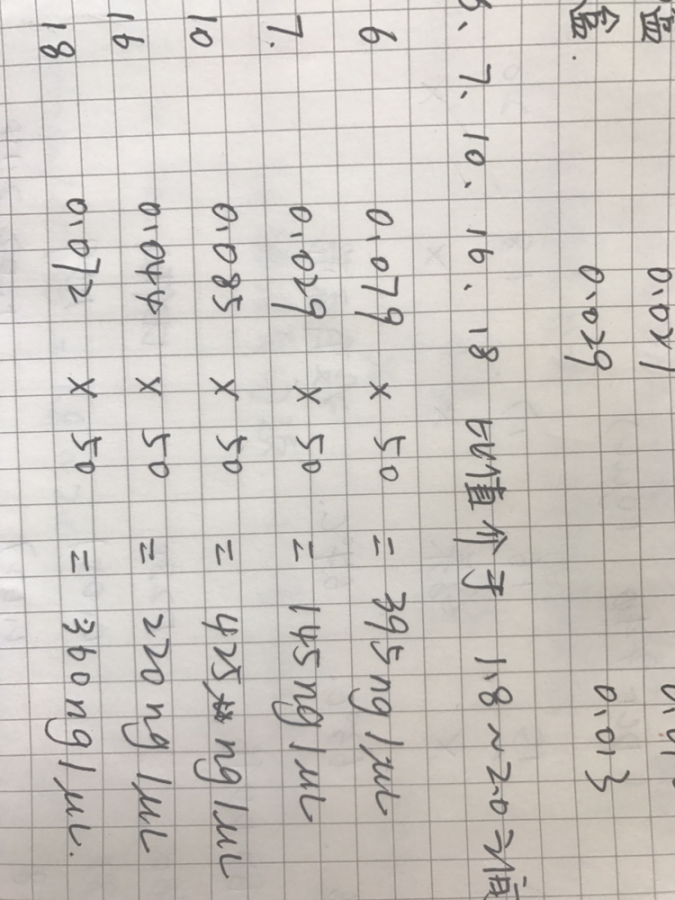 盐 0.021
盒. 0.029 0.013
6、7、10、16、18 比值介于 1.8~2.0之间
6 0.079 × 50 = 395ng/μL
7. 0.029 × 50 = 145ng/μL
10 0.085 × 50 = 425 ng/μL
16 0.044 × 50 = 220ng/μL
18 0.072 × 50 = 360ng/μL.